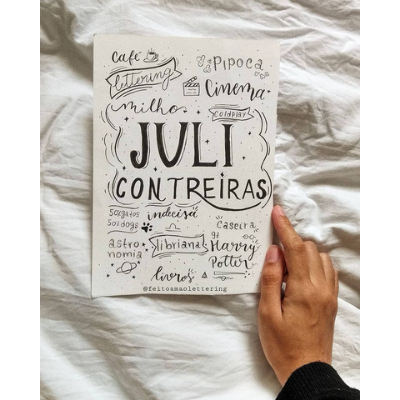 café
Pipoca
lettering
Cinema
milho
coldplay
JULI
CONTREIRAS
50%gatos
50%dogs
indecisa
caseira
astro
nomia
libriana
Harry
Potter
livros
@feitoamaolettering